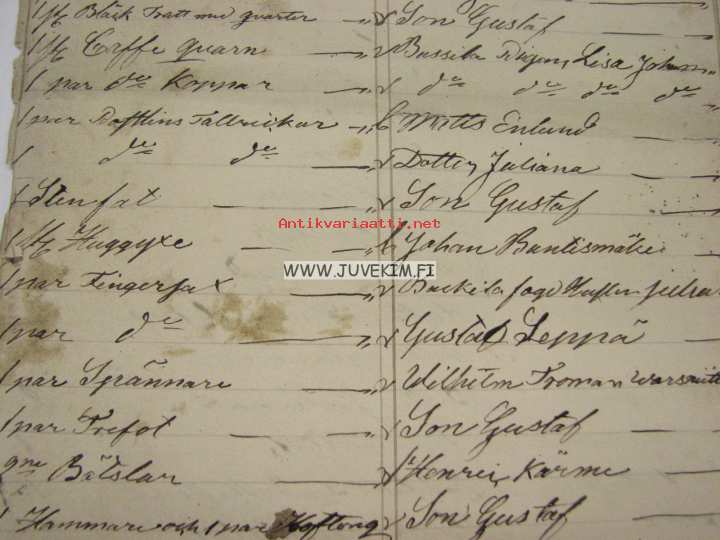 1 st Bläck Tratt med quarter — " Son Gustaf —
1 st Caffe quarn — " Bussila Pigan Lisa Johan
1 par do Koppar — " do do do do
1 par Tallrickar — " Matts Enlund —
1 do do — " Dotter Juliana —
1 Stenfat — " Son Gustaf —
Antikvariaatti.net
1 st Huggyxe — " Johan Bantismäki —
WWW.JUVEKIM.FI
1 par Fingersax — "
1 par do — " Gustaf Leppä —
1 par Spännare — " Wilhelm Froman
1 par Trefot — " Son Gustaf —
Båtslar — " Henric Kärme —
1 Hammare och 1 par Hoftong " Son Gustaf —